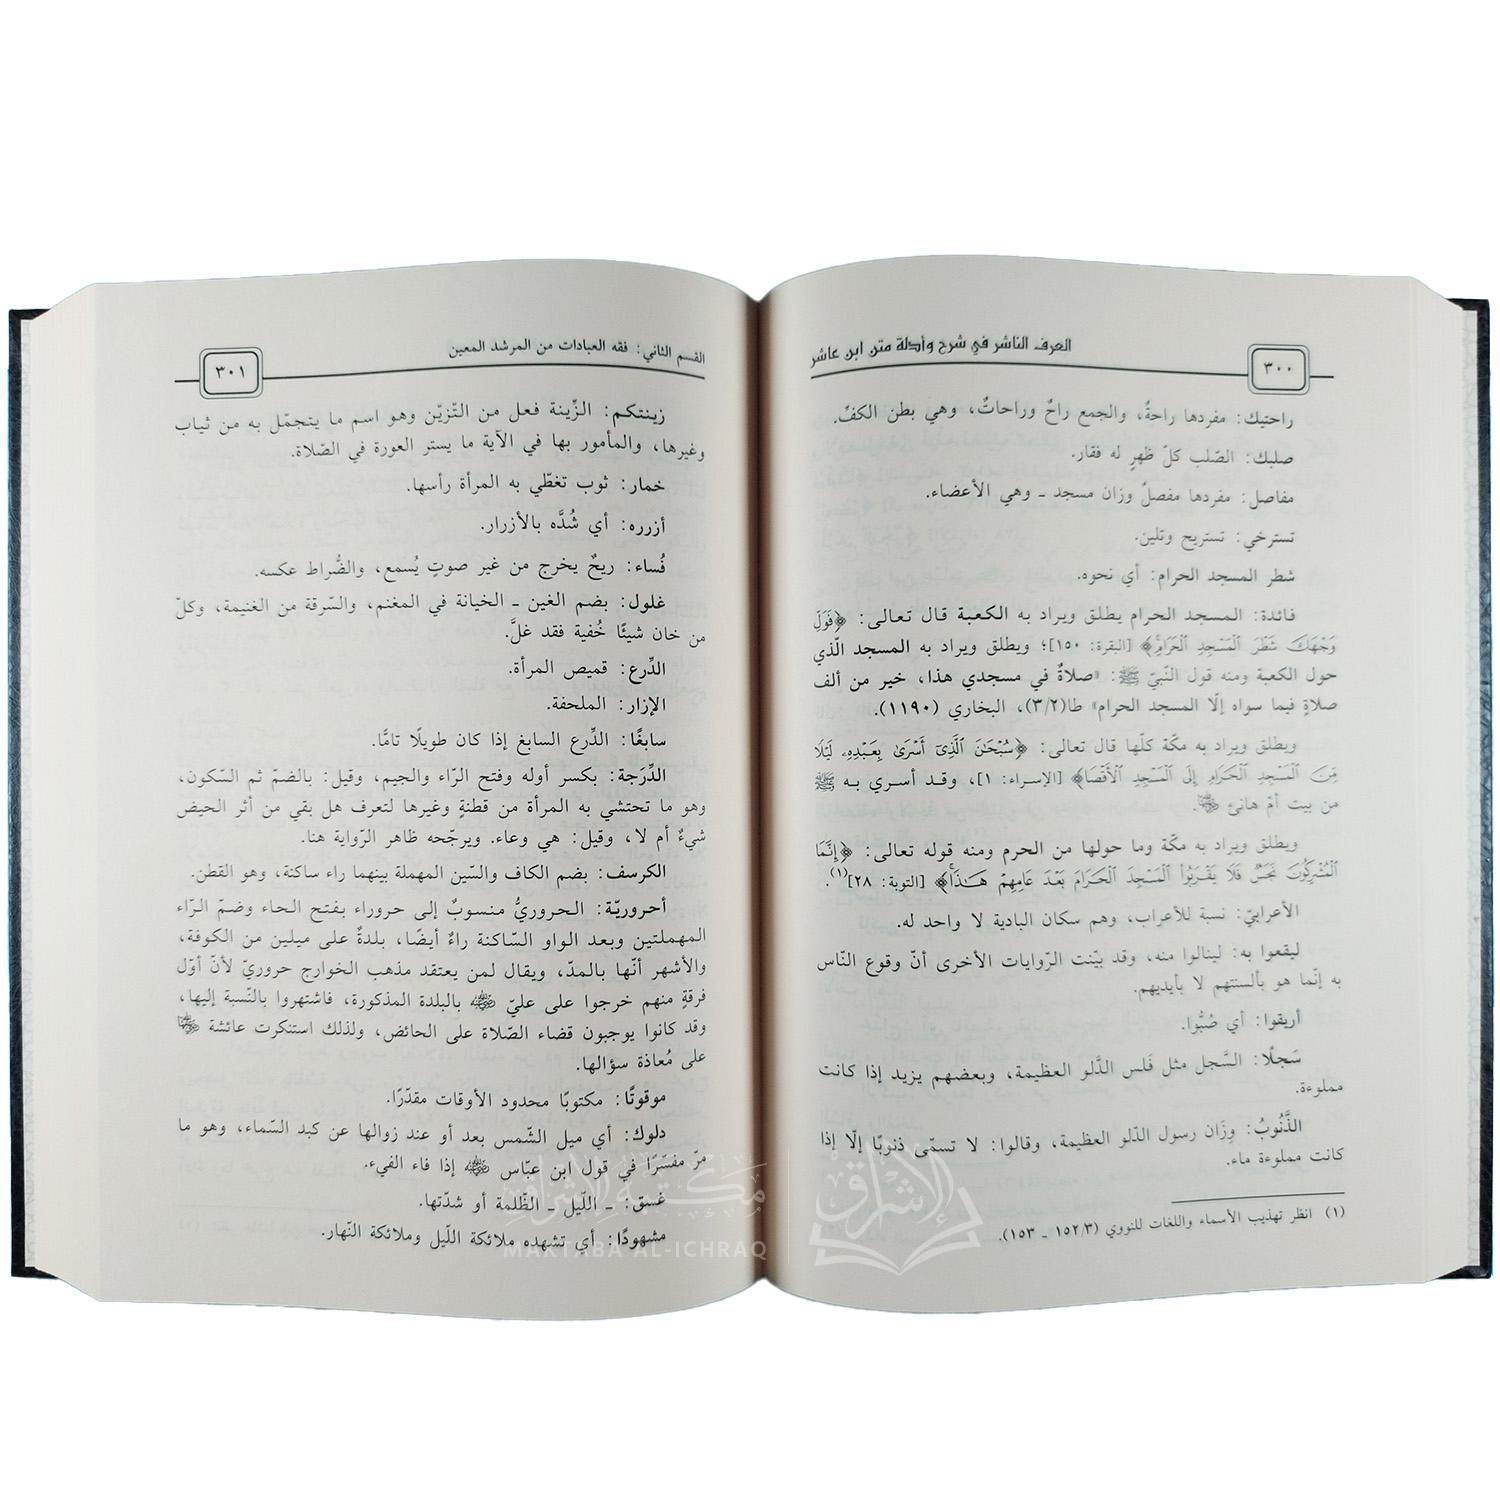 العرف الناشر في شرح وأدلة متن ابن عاشر
٣٠٠
راحتيك: مفردها راحةٌ، والجمع راحٌ وراحاتٌ، وهي بطن الكفّ.
صلبك: الصّلب كلّ ظهرٍ له فقار.
مفاصل: مفردها مفصلٌ وزان مسجد ـ وهي الأعضاء.
تسترخي: تستريح وتلين.
شطر المسجد الحرام: أي نحوه.
فائدة: المسجد الحرام يطلق ويراد به الكعبة قال تعالى: ﴿فَوَلِّ
وَجْهَكَ شَطْرَ ٱلْمَسْجِدِ ٱلْحَرَامِ﴾ [البقرة: ١٥٠]؛ ويطلق ويراد به المسجد الّذي
حول الكعبة ومنه قول النّبيّ ﷺ: «صلاةٌ في مسجدي هذا، خير من ألف
صلاةٍ فيما سواه إلّا المسجد الحرام» طا(٣/٢)، البخاري (١١٩٠).
ويطلق ويراد به مكّة كلّها قال تعالى: ﴿سُبْحَٰنَ ٱلَّذِىٓ أَسْرَىٰ بِعَبْدِهِۦ لَيْلًا
مِّنَ ٱلْمَسْجِدِ ٱلْحَرَامِ إِلَى ٱلْمَسْجِدِ ٱلْأَقْصَا﴾ [الإسراء: ١]، وقد أسري به ﷺ
من بيت أمّ هانئ رضي الله عنها.
ويطلق ويراد به مكّة وما حولها من الحرم ومنه قوله تعالى: ﴿إِنَّمَا
ٱلْمُشْرِكُونَ نَجَسٌ فَلَا يَقْرَبُوا۟ ٱلْمَسْجِدَ ٱلْحَرَامَ بَعْدَ عَامِهِمْ هَٰذَا﴾ [التوبة: ٢٨](١).
الأعرابيّ: نسبة للأعراب، وهم سكان البادية لا واحد له.
ليقعوا به: لينالوا منه، وقد بيّنت الرّوايات الأخرى أنّ وقوع النّاس
به إنّما هو بألسنتهم لا بأيديهم.
أريقوا: أي صُبُّوا.
سَجلًا: السَّجل مثل فَلس الدَّلو العظيمة، وبعضهم يزيد إذا كانت
مملوءة.
الذَّنُوبُ: وِزَان رسول الدّلو العظيمة، وقالوا: لا تسمّى ذنوبًا إلّا إذا
كانت مملوءة ماء.
(١) انظر تهذيب الأسماء واللغات للنووي (١٥٢/٣ ـ ١٥٣).
القسم الثاني: فقه العبادات من المرشد المعين
٣٠١
زينتكم: الزّينة فعل من التّزيّن وهو اسم ما يتجمّل به من ثياب
وغيرها، والمأمور بها في الآية ما يستر العورة في الصّلاة.
خمار: ثوب تغطّي به المرأة رأسها.
أزرره: أي شُدَّه بالأزرار.
فُساء: ريحٌ يخرج من غير صوتٍ يُسمع، والضُّراط عكسه.
غلول: بضم الغين ـ الخيانة في المغنم، والسّرقة من الغنيمة، وكلّ
من خان شيئًا خُفية فقد غلَّ.
الدِّرع: قميص المرأة.
الإزار: الملحفة.
سابغًا: الدِّرع السابغ إذا كان طويلًا تامًّا.
الدِّرَجة: بكسر أوله وفتح الرّاء والجيم، وقيل: بالضمّ ثم السّكون،
وهو ما تحتشي به المرأة من قطنةٍ وغيرها لتعرف هل بقي من أثر الحيض
شيءٌ أم لا، وقيل: هي وعاء. ويرجّحه ظاهر الرّواية هنا.
الكرسف: بضم الكاف والسّين المهملة بينهما راء ساكنة، وهو القطن.
أحروريّة: الحروريُّ منسوبٌ إلى حروراء بفتح الحاء وضمّ الرّاء
المهملتين وبعد الواو السّاكنة راءٌ أيضًا، بلدةٌ على ميلين من الكوفة،
والأشهر أنّها بالمدّ، ويقال لمن يعتقد مذهب الخوارج حروريّ لأنّ أوّل
فرقةٍ منهم خرجوا على عليّ رضي الله عنه بالبلدة المذكورة، فاشتهروا بالنّسبة إليها،
وقد كانوا يوجبون قضاء الصّلاة على الحائض، ولذلك استنكرت عائشة رضي الله عنها
على مُعاذة سؤالها.
موقوتًا: مكتوبًا محدود الأوقات مقدّرًا.
دلوك: أي ميل الشّمس بعد أو عند زوالها عن كبد السّماء، وهو ما
مرّ مفسّرًا في قول ابن عبّاس رضي الله عنه إذا فاء الفيء.
غسق: ـ اللّيل ـ الظّلمة أو شدّتها.
مشهودًا: أي تشهده ملائكة اللّيل وملائكة النّهار.
مكتبة الإشراق
MAKTABA AL-ICHRAQ
الإشراق